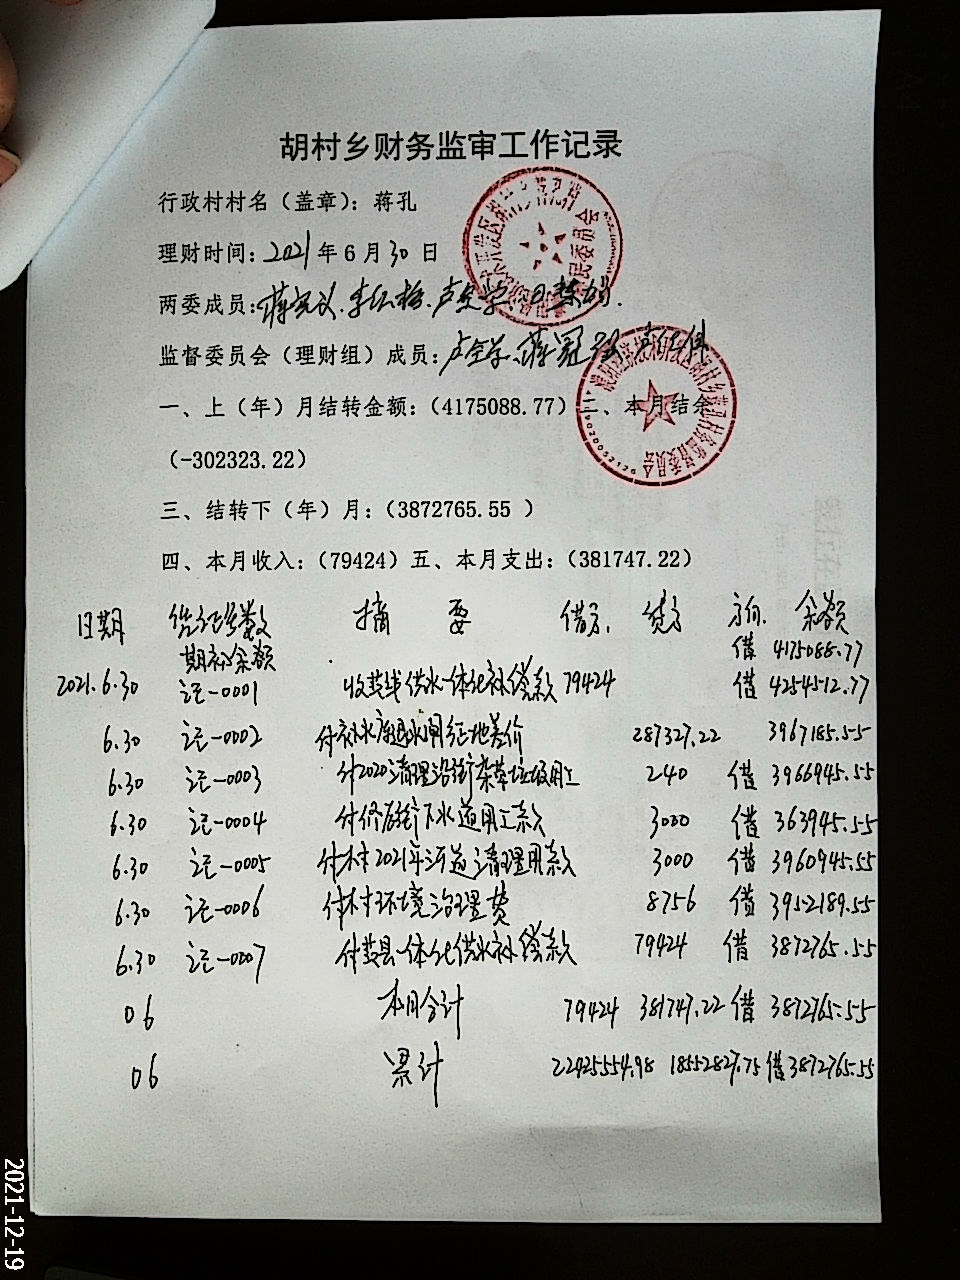 胡村乡财务监审工作记录
行政村村名（盖章）：蒋孔
理财时间：2021年6月30日
两委成员：
监督委员会（理财组）成员：
一、上（年）月结转金额：（4175088.77）二、本月结余
（-302323.22）
三、结转下（年）月：（3872765.55 ）
四、本月收入：（79424）五、本月支出：（381747.22）
日期 凭证号数 摘 要 借方. 贷方 方向. 余额
期初余额 借 4175088.77
2021.6.30 记-0001 收 供水一体化补偿款 79424 借 4254512.77
6.30 记-0002 付补水库退水闸征地差价 287327.22 3967185.55
6.30 记-0003 付2020清理沿街杂草垃圾用工 240 借 3966945.55
6.30 记-0004 付修 下水道用工款 3000 借 363945.55
6.30 记-0005 付村2021年河道清理用款 3000 借 3960945.55
6.30 记-0006 付村环境治理费 8756 借 3952189.55
6.30 记-0007 付 县一体化供水补偿款 79424 借 3872765.55
06 本月合计 79424 381747.22 借 3872765.55
06 累计 22425554.98 18552827.75 借 3872765.55
2021-12-19